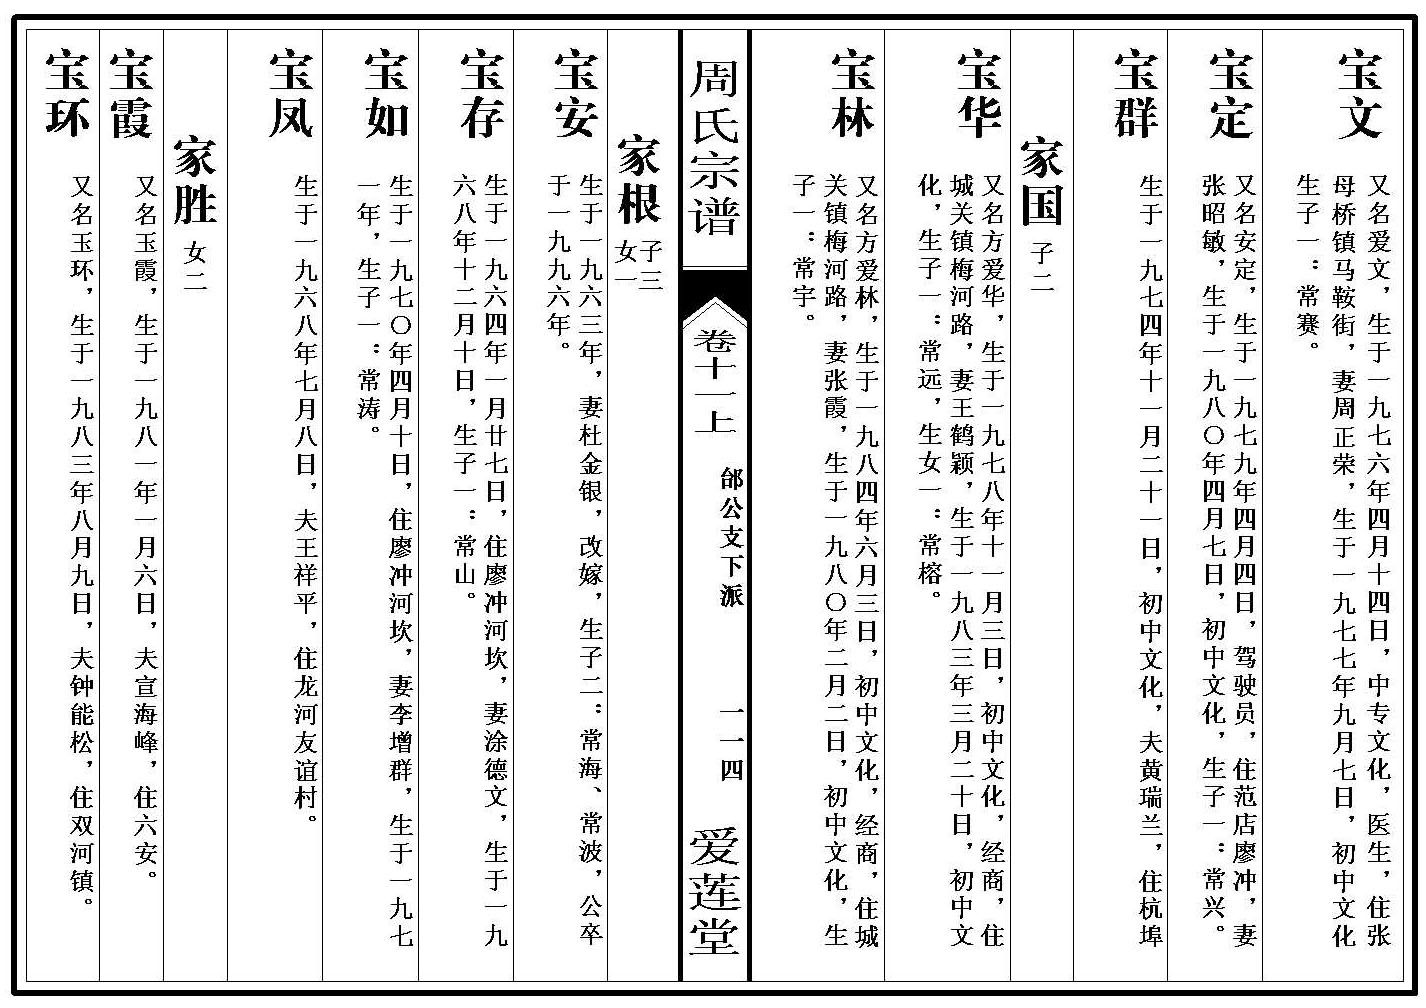 宝文
又名爱文，生于一九七六年四月十四日，中专文化，医生，住张
母桥镇马鞍街，妻周正荣，生于一九七七年九月七日，初中文化
生子一：常赛。
宝定
又名安定，生于一九七九年四月四日，驾驶员，住范店廖冲，妻
张昭敏，生于一九八〇年四月七日，初中文化，生子一：常兴。
宝群
生于一九七四年十一月二十一日，初中文化，夫黄瑞兰，住杭埠
家国
子二
宝华
又名方爱华，生于一九七八年十一月三日，初中文化，经商，住
城关镇梅河路，妻王鹤颖，生于一九八三年三月二十日，初中文
化，生子一：常远，生女一：常榕。
宝林
又名方爱林，生于一九八四年六月三日，初中文化，经商，住城
关镇梅河路，妻张霞，生于一九八〇年二月二日，初中文化，生
子一：常宇。
周氏宗谱
卷十一上
邰公支下派
一一四
爱莲堂
家根
子三
女一
宝安
生于一九六三年，妻杜金银，改嫁，生子二：常海、常波，公卒
于一九九六年。
宝存
生于一九六四年一月廿七日，住廖冲河坎，妻涂德文，生于一九
六八年十二月十日，生子一：常山。
宝如
生于一九七〇年四月十日，住廖冲河坎，妻李增群，生于一九七
一年，生子一：常涛。
宝凤
生于一九六八年七月八日，夫王祥平，住龙河友谊村。
家胜
女二
宝霞
又名玉霞，生于一九八一年一月六日，夫宣海峰，住六安。
宝环
又名玉环，生于一九八三年八月九日，夫钟能松，住双河镇。